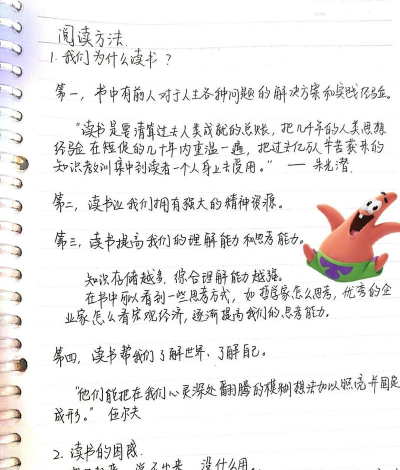 阅读方法.
1. 我们为什么读书？
第一，书中有前人对于人生各种问题的解决方案和实践经验。
"读书是要清算过去人类成就的总账，把几千年的人类思想
经验在短促的几十年内重温一遍，把过去亿万人辛苦获来的
知识教训集中到读者一个人身上去受用。" —— 朱光潜.
第二，读书让我们拥有强大的精神资源。
第三，读书提高我们的理解能力和思考能力。
知识存储越多，综合理解能力越强。
在书中可以看到一些思考方式，如 哲学家怎么思考，优秀的企
业家怎么看宏观经济，逐渐提高我们的思考能力。
第四，读书帮我们了解世界、了解自己。
"他们能把在我们心灵深处翻腾的模糊想法加以照亮并固定
成形。" 伍尔夫
2. 读书的困惑.
没什么用。